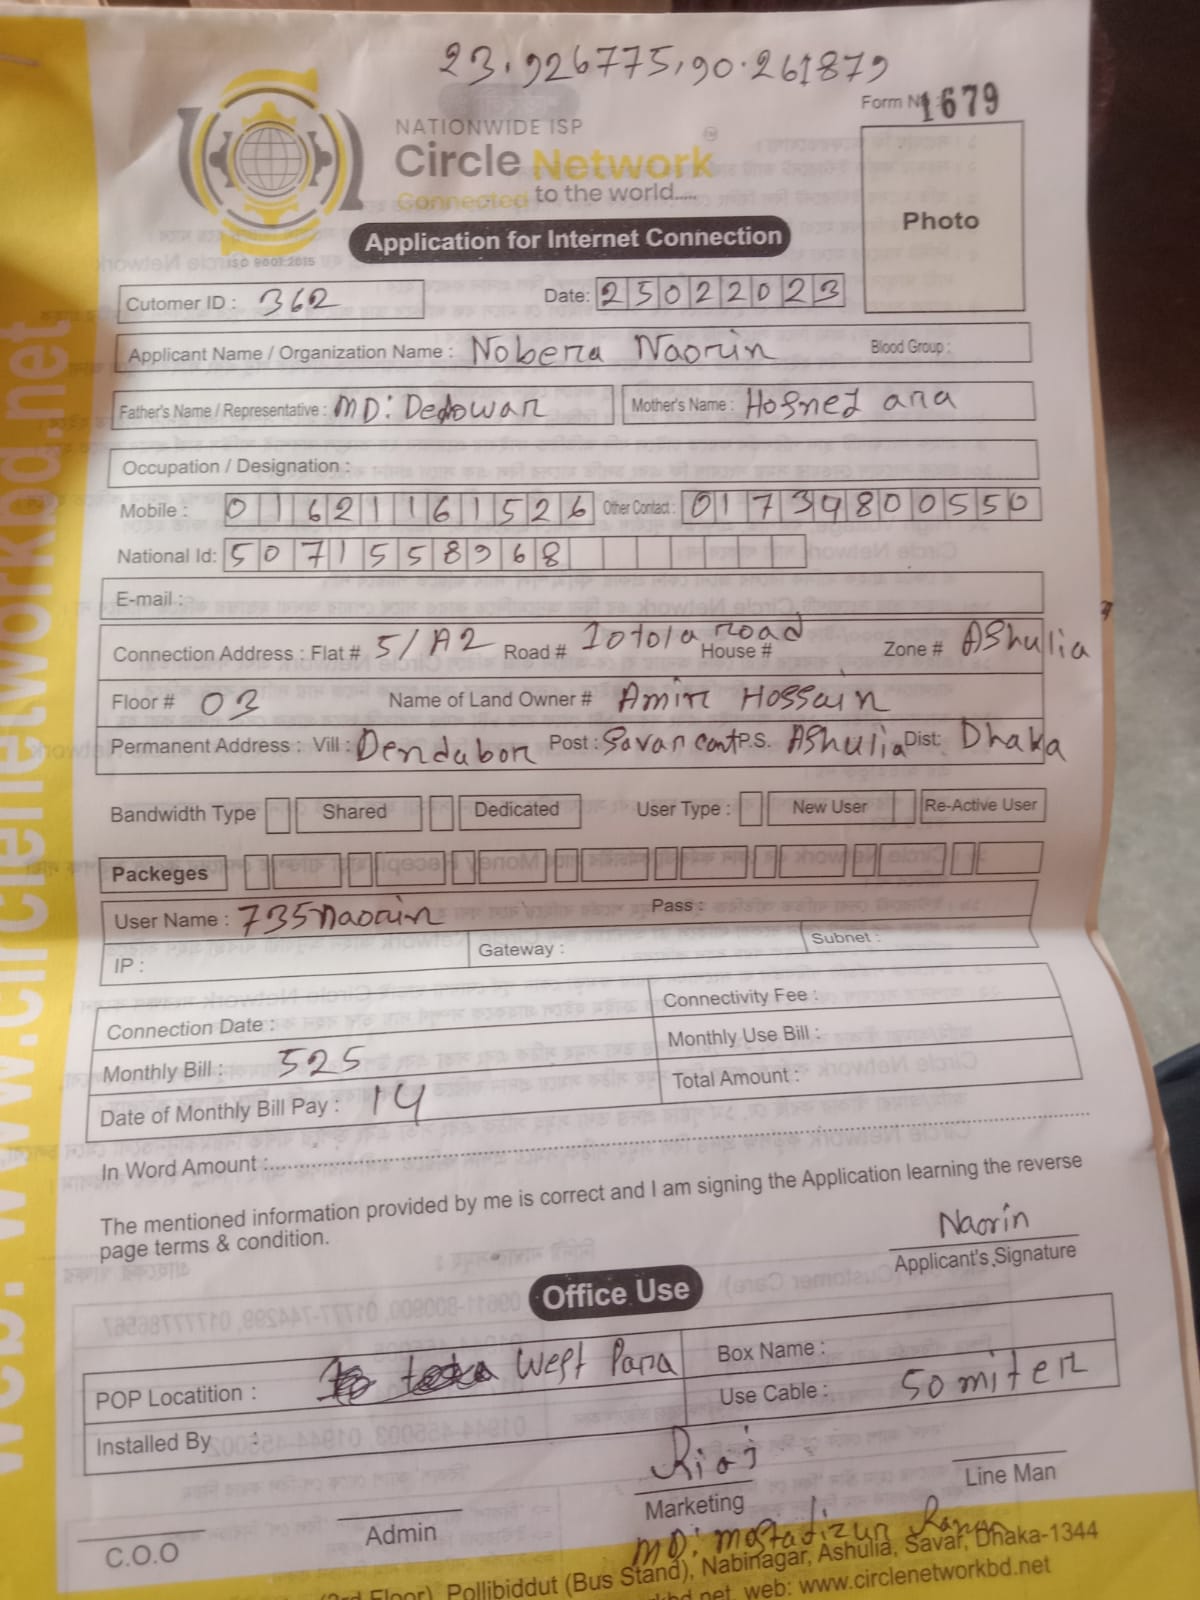 23.926775,90.261879
Form No: 1679
NATIONWIDE ISP
Circle Network
Connected to the world.....
ISO 9001:2015
Application for Internet Connection
Photo
Cutomer ID : 362
Date: 25022023
Applicant Name / Organization Name : Nobera Naorin Blood Group :
Father's Name / Representative : MD: Dedowar Mother's Name : Hosned ara
Occupation / Designation :
Mobile : 01621161526 Other Contact : 01739800550
National Id: 5071558968
E-mail :
Connection Address : Flat # 5/A2 Road # 10tola road House # Zone # AShulia
Floor # 03 Name of Land Owner # Amir Hossain
Permanent Address : Vill : Dendabor Post : Savar cant P.S. AShulia Dist: Dhaka
Bandwidth Type Shared Dedicated User Type : New User Re-Active User
Packeges
User Name : 735naorin Pass :
IP : Gateway : Subnet :
Connection Date : Connectivity Fee :
Monthly Bill : 525 Monthly Use Bill :
Date of Monthly Bill Pay : 14 Total Amount :
In Word Amount :
The mentioned information provided by me is correct and I am signing the Application learning the reverse
page terms & condition.
Naorin
Applicant's Signature
Office Use
POP Locatition : West Para Box Name :
Installed By : Use Cable : 50 miter
Riaj
C.O.O Admin Marketing Line Man
MD: Mostafizur Rahman
(3rd Floor), Pollibiddut (Bus Stand), Nabinagar, Ashulia, Savar, Dhaka-1344
web: www.circlenetworkbd.net
web: www.circlenetworkbd.net